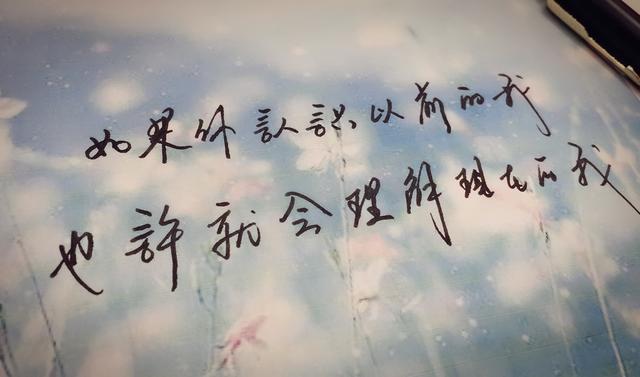 如果你認識以前的我
也許就会理解現在的我